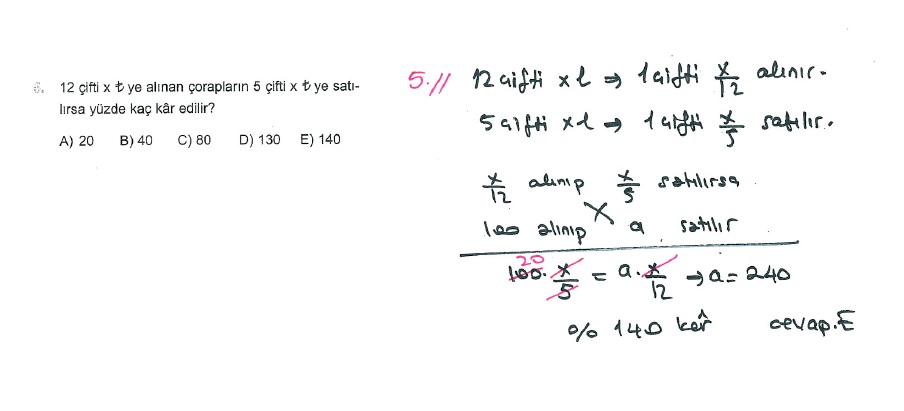 6. 12 çifti x ₺ ye alınan çorapların 5 çifti x ₺ ye satı-
lırsa yüzde kaç kâr edilir?
A) 20 B) 40 C) 80 D) 130 E) 140
5.// 12 çifti x L ⇒ 1 çifti x/12 alınır.
5 çifti x L → 1 çifti x/5 satılır.
x/12 alınıp x/5 satılırsa
100 alınıp a satılır
20
100. x/5 = a. x/12 → a = 240
% 140 kâr cevap. E